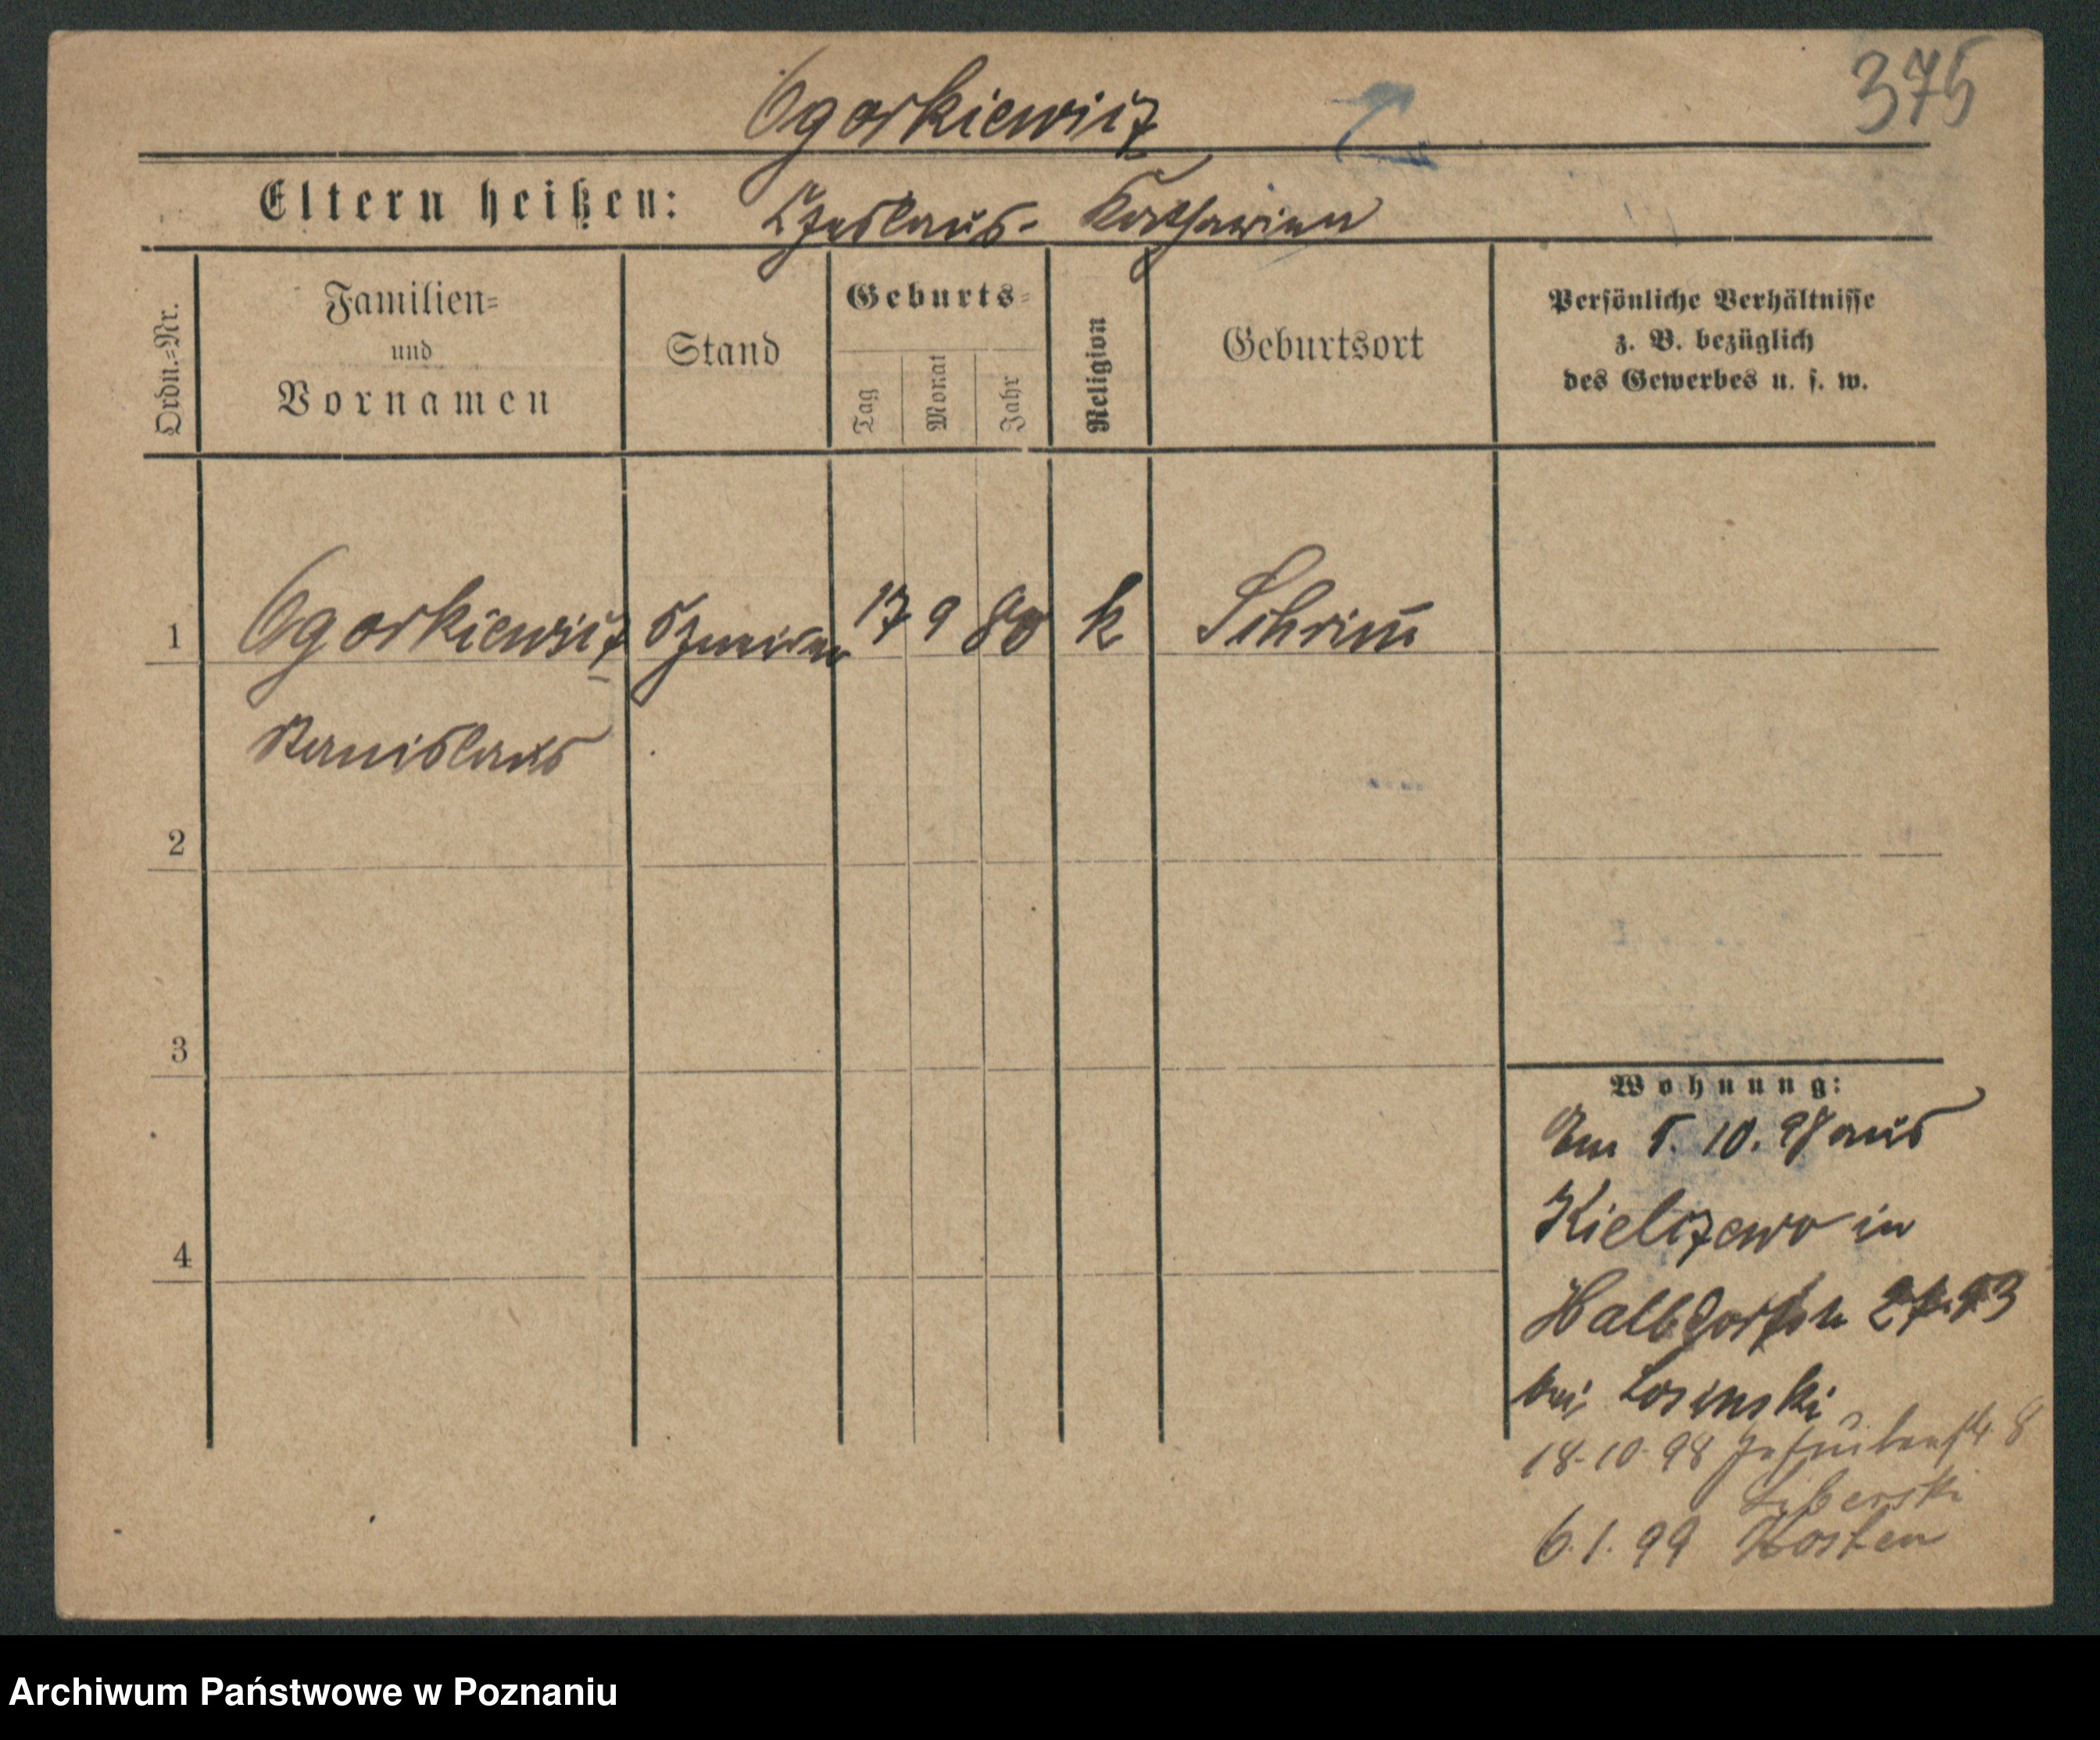 375
Ogorkiewicz
Eltern heißen: Czeslaus - Katharina
Ordn.=Nr.
Familien= und Vornamen
Stand
Geburts=
Tag
Monat
Jahr
Religion
Geburtsort
Persönliche Verhältnisse
z. B. bezüglich
des Gewerbes u. s. w.
1 Ogorkiewicz 17 9 80 k Schrim̄
Stanislaus
2
3
4
Wohnung:
Am 5. 10. 98 aus
Kielczewo in
Halbdorfstr
bei Losinski
18.10.98 Jesuitenstr. 8
6.1.99 Kosten
Archiwum Państwowe w Poznaniu